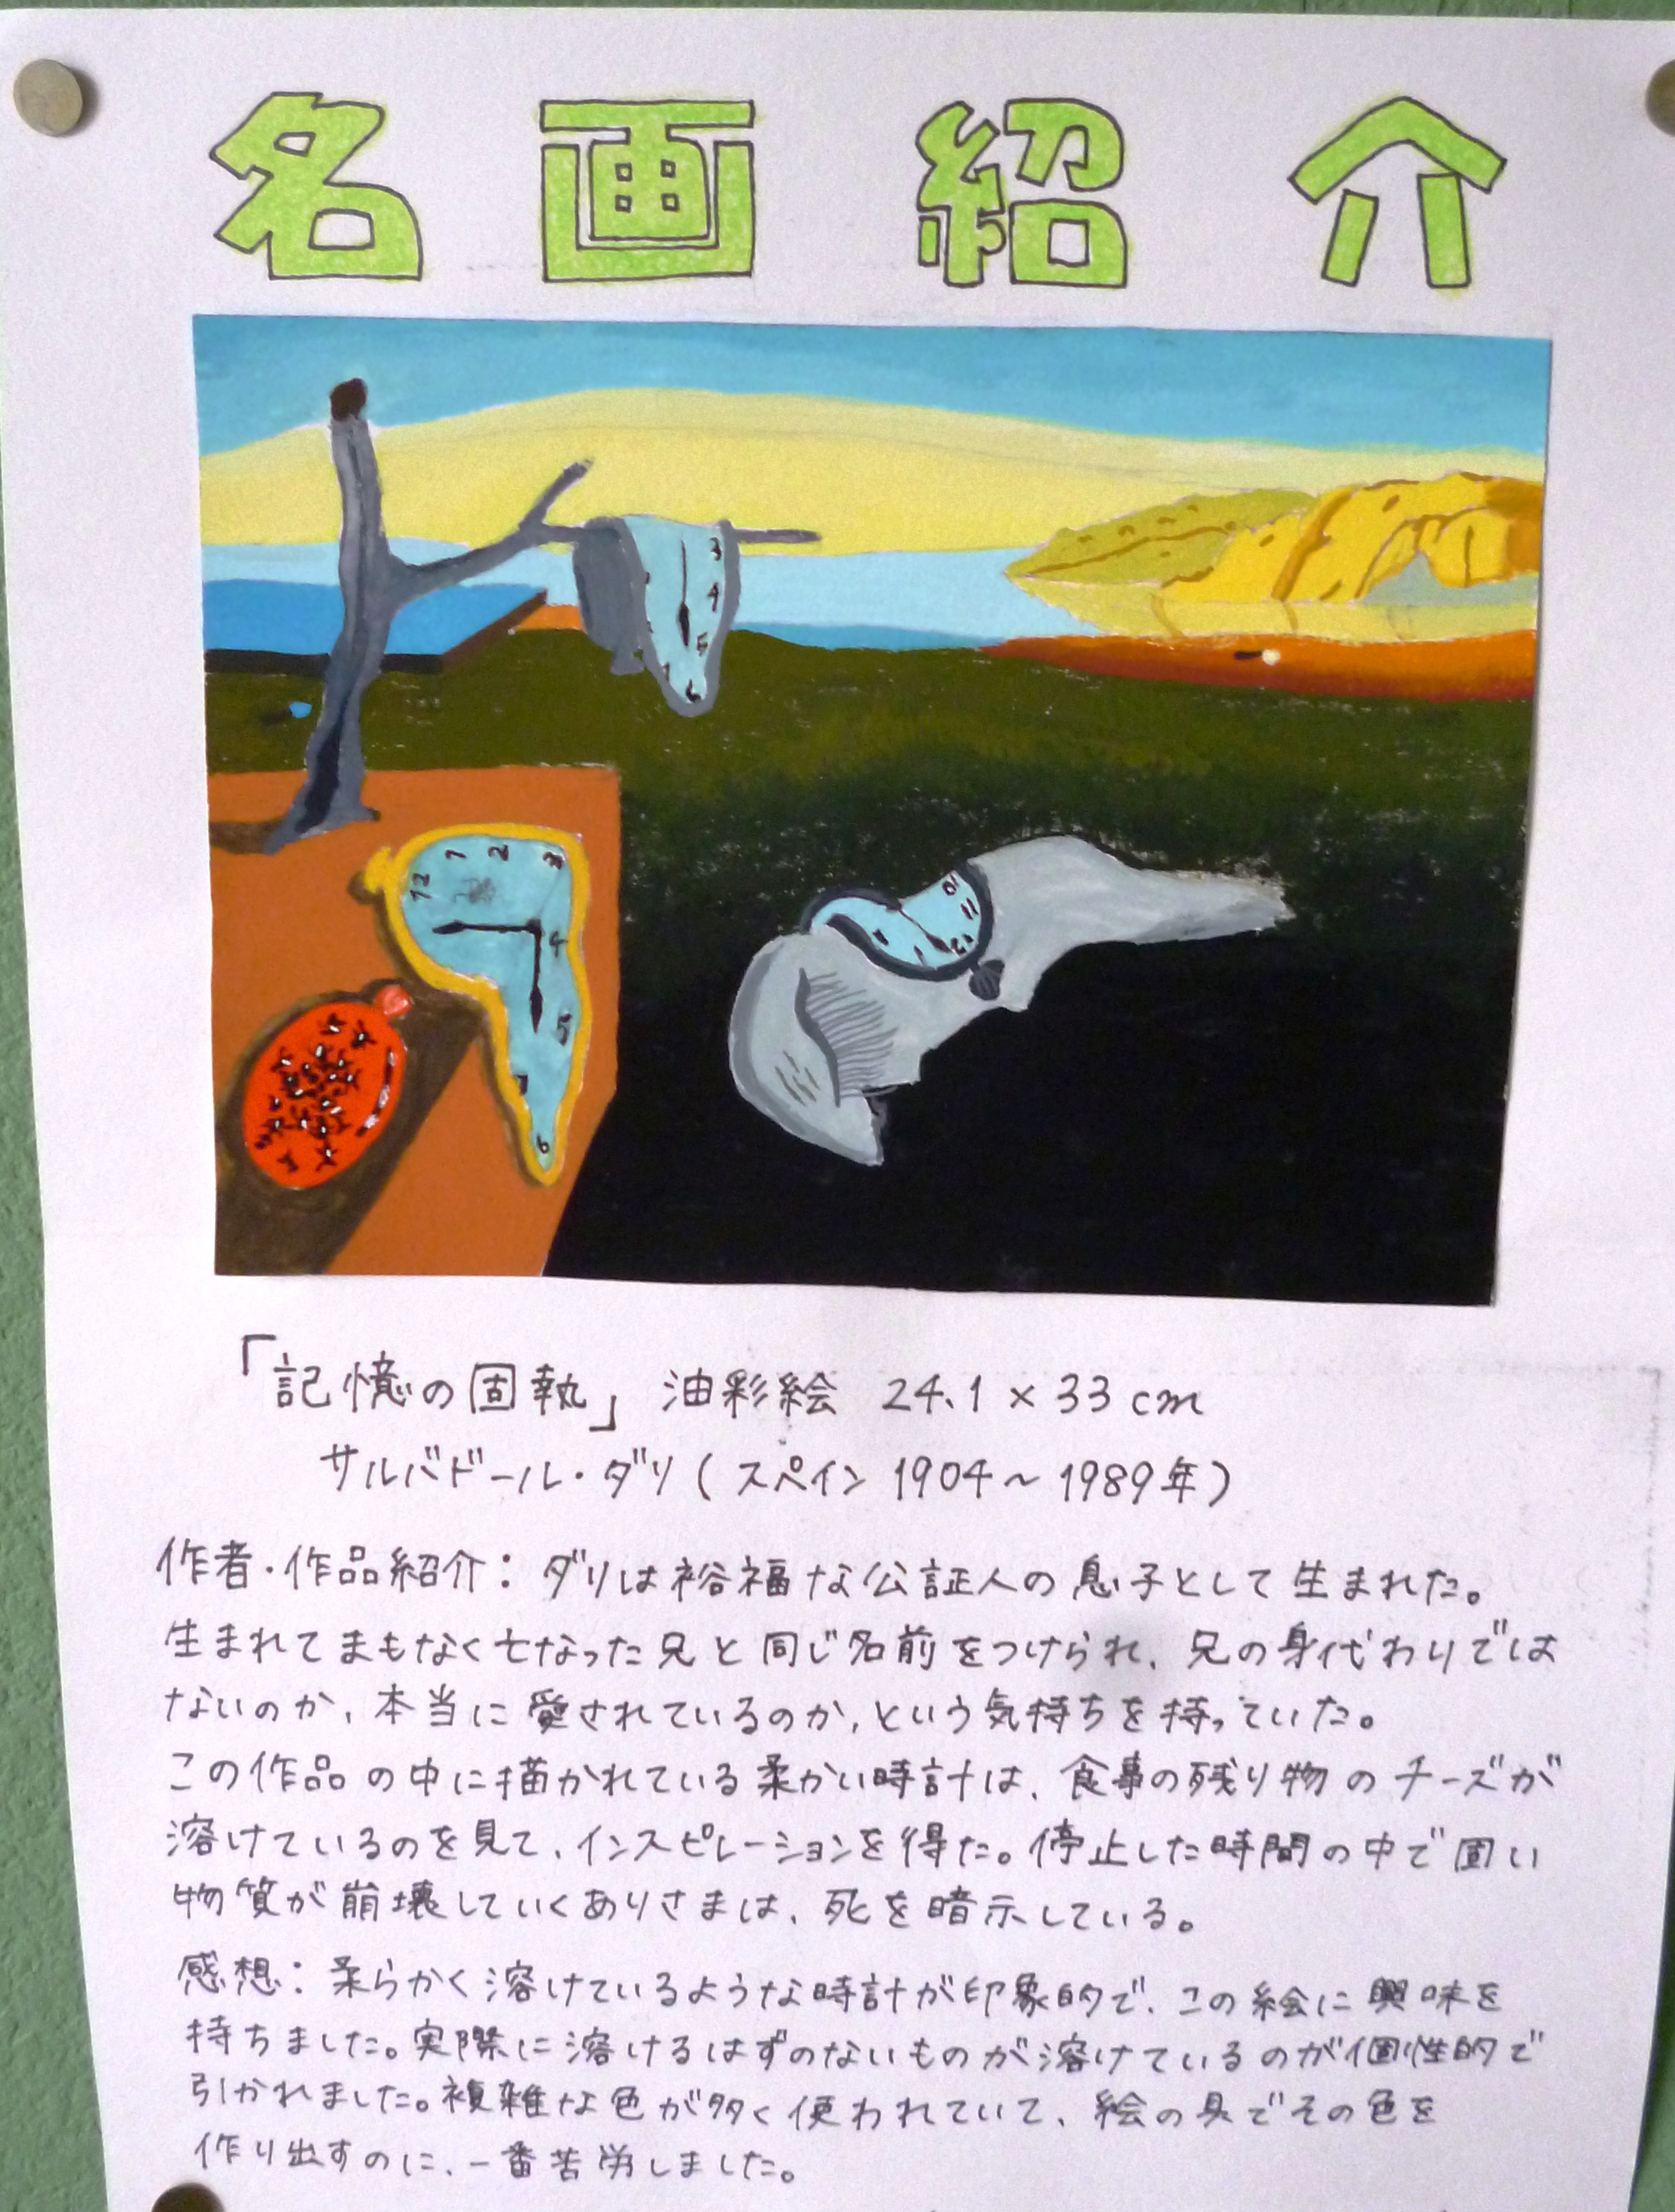 名画紹介
3
4
5
6
12
1
2
3
4
5
6
10
11
12
1
「記憶の固執」 油彩絵 24.1 × 33 cm
サルバドール・ダリ ( スペイン 1904 ~ 1989年 )
作者・作品紹介: ダリは裕福な公証人の息子として生まれた。
生まれてまもなく亡なった兄と同じ名前をつけられ、兄の身代わりでは
ないのか、本当に愛されているのか、という気持ちを持っていた。
この作品の中に描かれている柔かい時計は、食事の残り物のチーズが
溶けているのを見て、インスピレーションを得た。停止した時間の中で固い
物質が崩壊していくありさまは、死を暗示している。
感想: 柔らかく溶けているような時計が印象的で、この絵に興味を
持ちました。実際に溶けるはずのないものが溶けているのが個性的で
引かれました。複雑な色が多く使われていて、絵の具でその色を
作り出すのに、一番苦労しました。